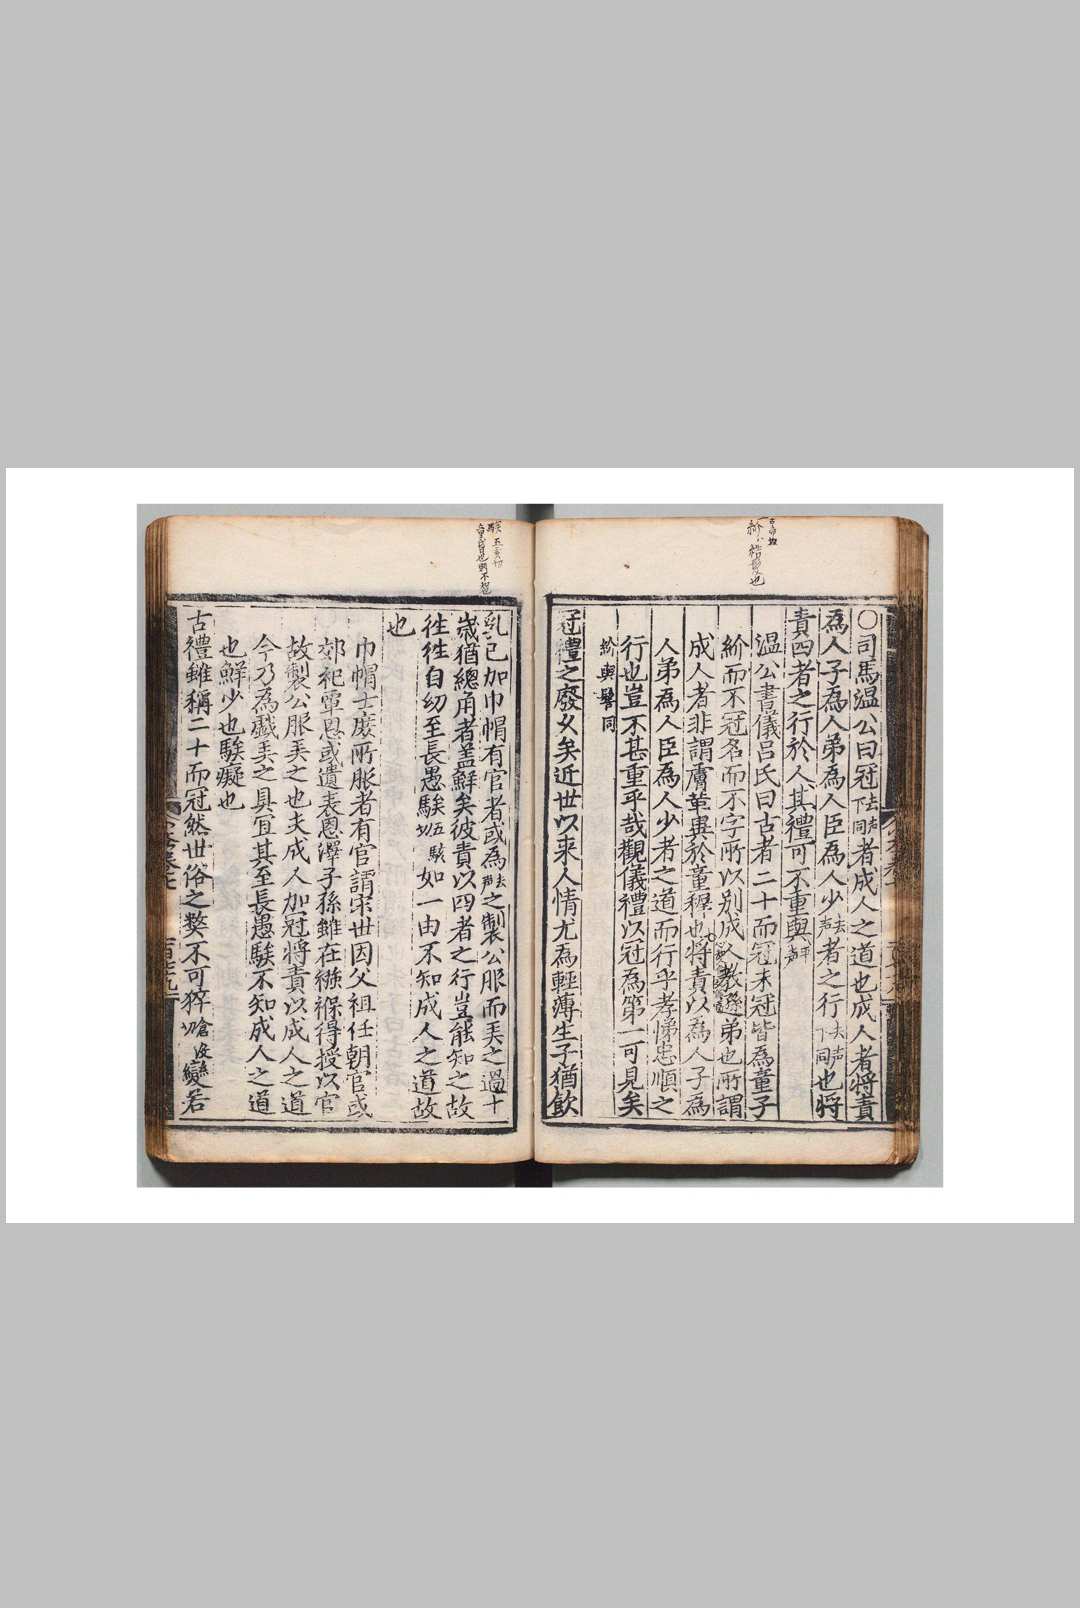 ○司馬温公曰冠去声下同者成人之道也成人者将責
為人子為人弟為人臣為人少去声者之行去声下同也将
責四者之行於人其禮可不重與平声
温公書儀吕氏曰古者二十而冠未冠皆為童子
紒而不冠名而不字所以别成人教遜弟也所謂
成人者非謂膚革異於童穉也将責以為人子為
人弟為人臣為人少者之道而行乎孝悌忠順之
行也豈不甚重乎哉觀儀禮以冠為第一可見矣
紒與髻同
冠禮之廢久矣近世以来人情尤為輕薄生子猶飲
乳已加巾帽有官者或為去声之製公服而弄之過十
歳猶總角者盖鮮矣彼責以四者之行豈能知之故
徃徃自幼至長愚騃五駭切如一由不知成人之道故
也
巾帽士庶所服者有官謂宋世因父祖任朝官或
郊祀覃恩或遺表恩澤子孫雖在襁褓得授以官
故製公服弄之也夫成人加冠将責以成人之道
今乃為戲弄之具宜其至長愚騃不知成人之道
也鮮少也騃癡也
古禮雖稱二十而冠然世俗之弊不可猝倉没切變若